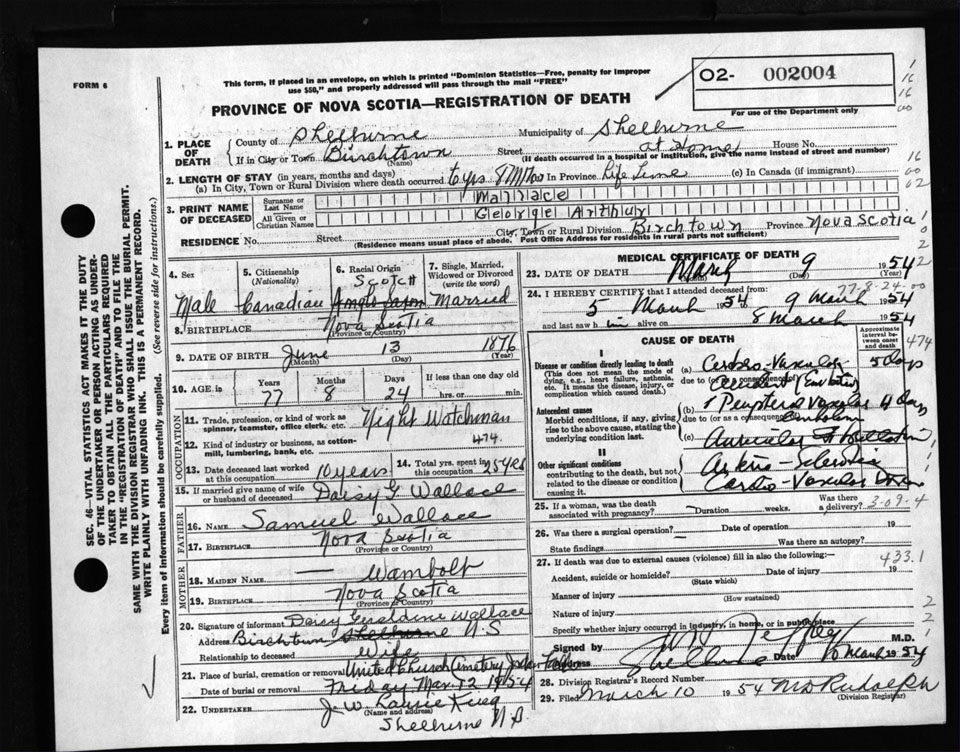 FORM 6
This form, if placed in an envelope, on which is printed "Dominion Statistics—Free, penalty for improper
use $50," and properly addressed will pass through the mail "FREE"
PROVINCE OF NOVA SCOTIA—REGISTRATION OF DEATH
02- 002004
For use of the Department only
1. PLACE OF DEATH
County of Shelburne Municipality of Shelburne
If in City or Town Birchtown Street at Home House No.
(Name) (If death occurred in a hospital or institution, give the name instead of street and number)
2. LENGTH OF STAY (in years, months and days)
(a) In City, Town or Rural Division where death occurred 6 yrs 8 Mos In Province Life Time (c) In Canada (if immigrant)
3. PRINT NAME OF DECEASED
Surname or Last Name Wallace
All Given or Christian Names George Arthur
RESIDENCE No. Street City, Town or Rural Division Birchtown Province Nova Scotia
(Residence means usual place of abode. Post Office Address for residents in rural parts not sufficient)
4. Sex Male
5. Citizenship (Nationality) Canadian
6. Racial Origin Scotch Anglo Saxon
7. Single, Married, Widowed or Divorced (write the word) Married
8. BIRTHPLACE Nova Scotia
(Province or Country)
9. DATE OF BIRTH June 13 1876
(Day) (Year)
10. AGE is Years 77 Months 8 Days 24 If less than one day old hrs. or min.
OCCUPATION
11. Trade, profession, or kind of work as spinner, teamster, office clerk, etc. Night Watchman
12. Kind of industry or business, as cotton-mill, lumbering, bank, etc. 474.
13. Date deceased last worked at this occupation 10 years
14. Total yrs. spent in this occupation 25 yrs
15. If married give name of wife or husband of deceased Daisy G Wallace
FATHER
16. NAME Samuel Wallace
17. BIRTHPLACE Nova Scotia
(Province or Country)
MOTHER
18. MAIDEN NAME — Wambolt
19. BIRTHPLACE Nova Scotia
(Province or Country)
20. Signature of informant Daisy Geraldine Wallace
Address Birchtown Shelburne N.S
Relationship to deceased Wife
21. Place of burial, cremation or removal United Church Cemetery Jordan Falls
Date of burial or removal Friday Mar. 12 1954
22. UNDERTAKER
(Name and address)
Shelburne N.S.
MEDICAL CERTIFICATE OF DEATH
23. DATE OF DEATH March 9 1954
(Day) (Year)
77-8-24-00
24. I HEREBY CERTIFY that I attended deceased from
5 March 1954 9 March 1954
and last saw h im alive on 8 March 1954
CAUSE OF DEATH
Approximate interval between onset and death
474
I
Disease or condition directly leading to death
(This does not mean the mode of dying, e.g., heart failure, asthenia, etc. It means the disease, injury, or complication which caused death.)
(a) Cerebro-Vascular 5 days
due to (or as a consequence of)
Accident (Embolism)
Antecedent causes
Morbid conditions, if any, giving rise to the above cause, stating the underlying condition last.
(b) Peripheral Vascular 4 days
due to (or as a consequence of) Embolism
(c) Auricular Fibrillation
II
Other significant conditions
contributing to the death, but not related to the disease or condition causing it.
Arterio-Sclerosis
Cardio-Vascular
25. If a woman, was the death associated with pregnancy? Duration weeks. Was there a delivery? 3-09-4
26. Was there a surgical operation? — Date of operation 19
State findings Was there an autopsy?
27. If death was due to external causes (violence) fill in also the following:—
433.1
Accident, suicide or homicide? Date of injury 19
(State which)
Manner of injury
(How sustained)
Nature of injury
Specify whether injury occurred in industry, in home, or in public place
Signed by M.D.
Address Shelburne Date 10 March 1954
28. Division Registrar's Record Number
29. Filed March 10 1954 M D Rudolph
(Division Registrar)
SEC. 46—VITAL STATISTICS ACT MAKES IT THE DUTY
OF THE UNDERTAKER OR PERSON ACTING AS UNDER-
TAKER TO OBTAIN ALL THE PARTICULARS REQUIRED
IN THE "REGISTRATION OF DEATH" AND TO FILE THE
SAME WITH THE DIVISION REGISTRAR WHO SHALL ISSUE THE BURIAL PERMIT.
WRITE PLAINLY WITH UNFADING INK. THIS IS A PERMANENT RECORD.
Every item of information should be carefully supplied. (See reverse side for instructions.)